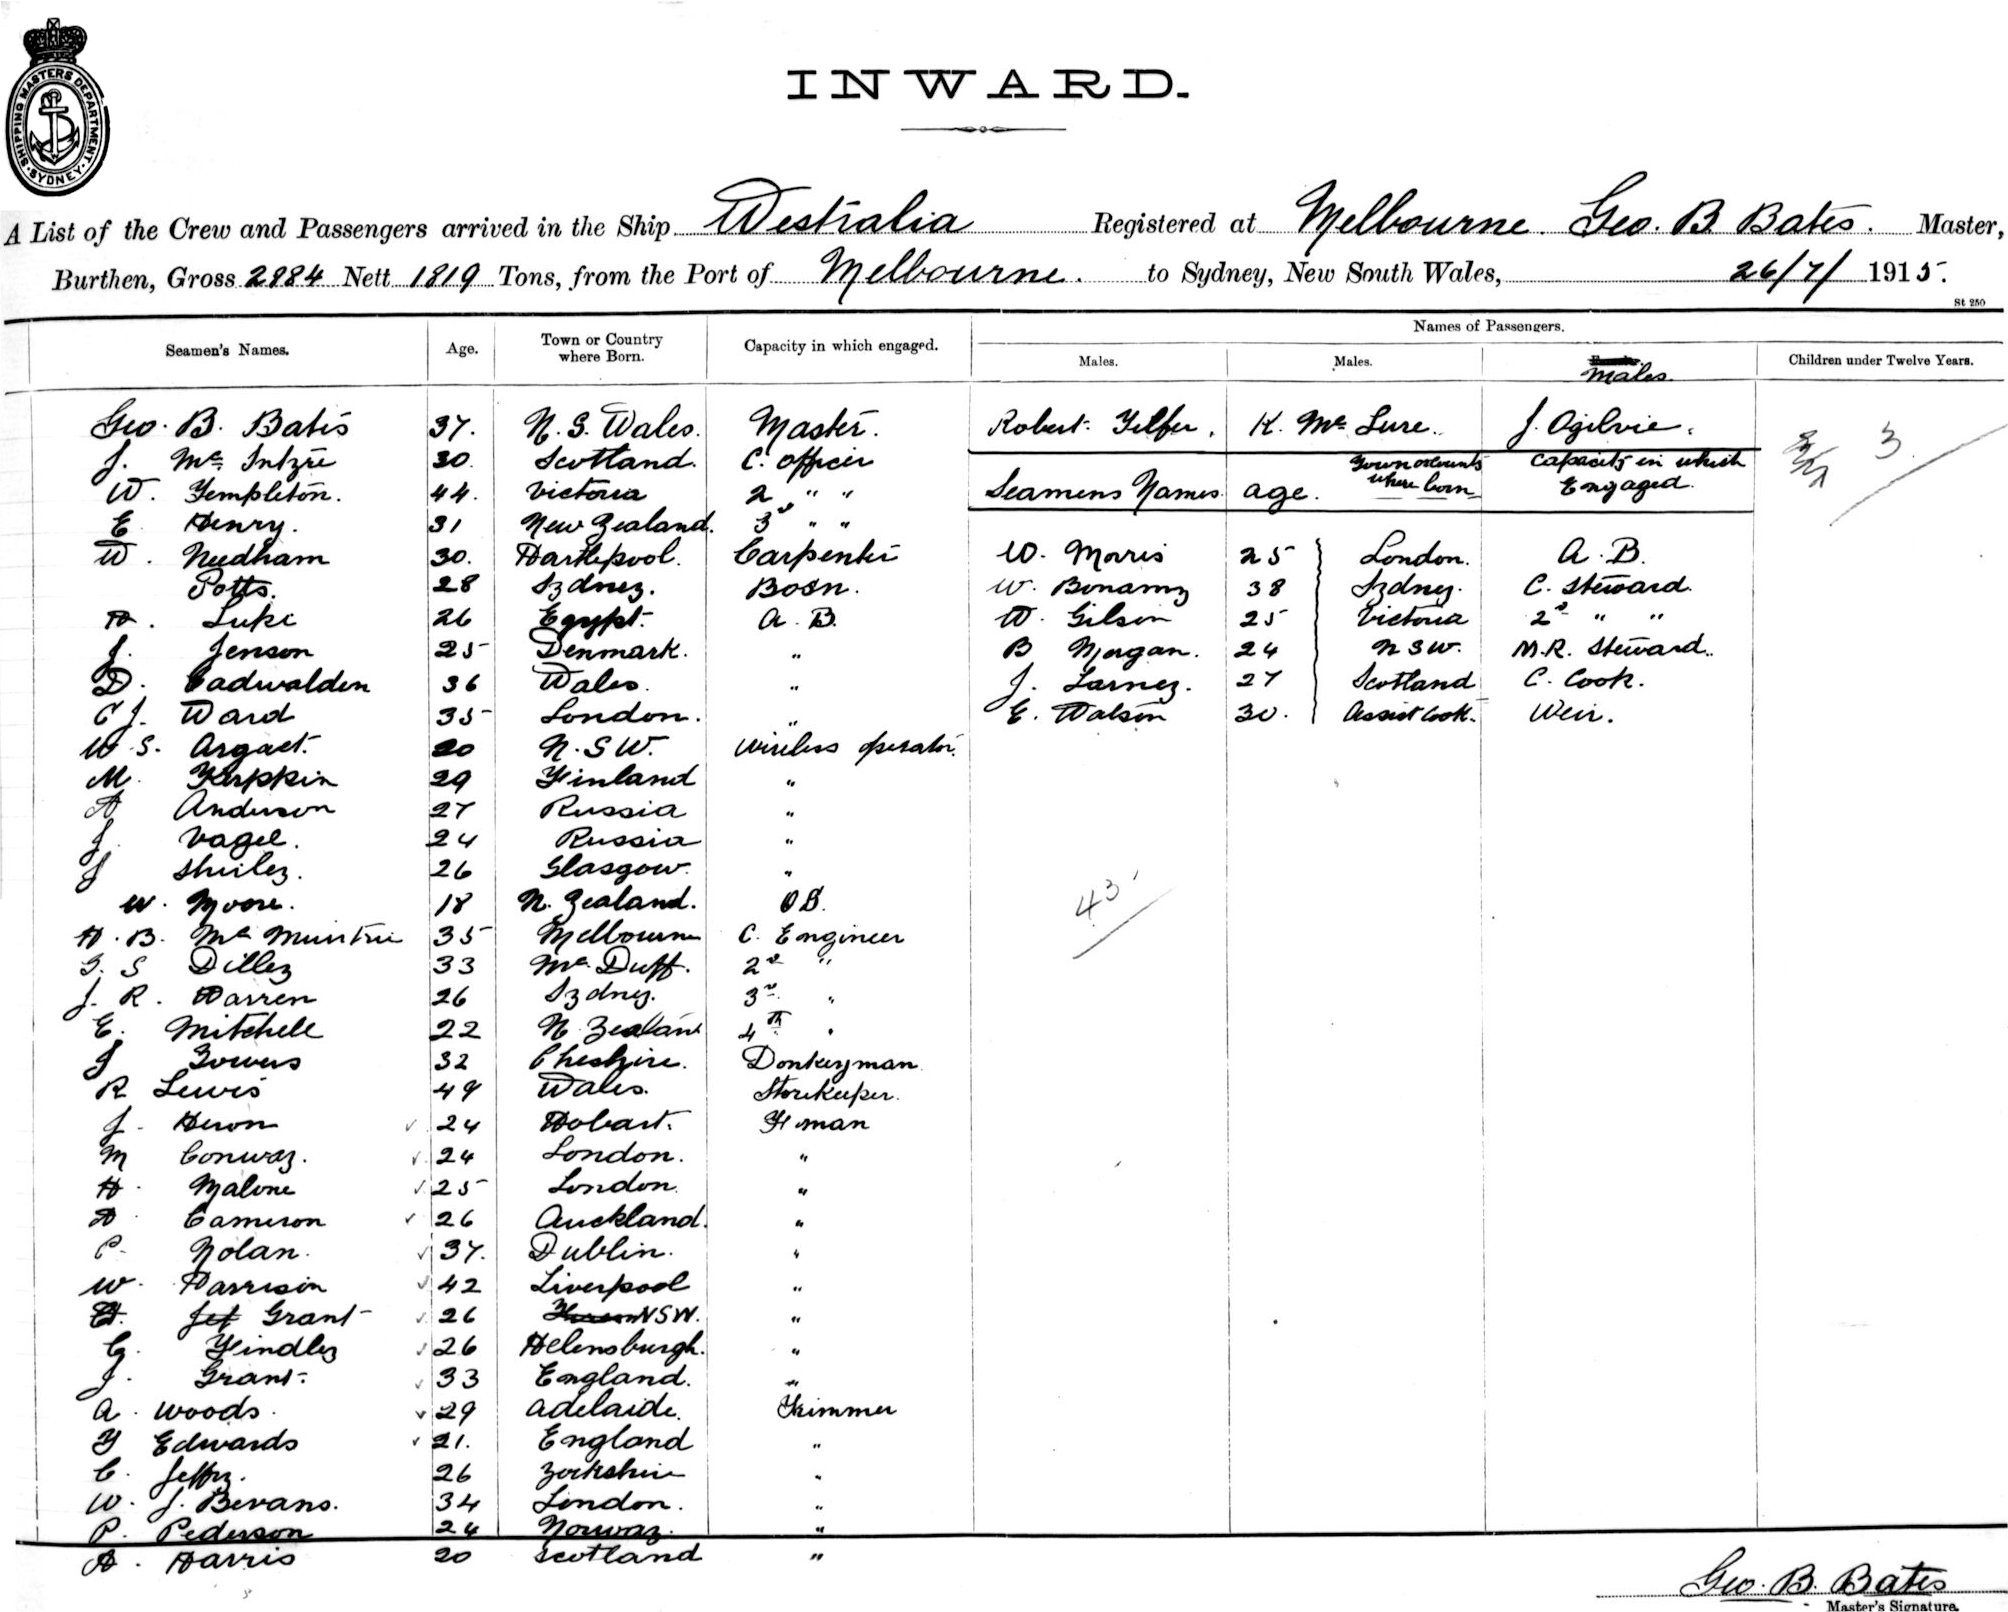 SHIPPING MASTERS DEPARTMENT. SYDNEY.
INWARD.
A List of the Crew and Passengers arrived in the Ship Westralia Registered at Melbourne. Geo. B. Bates. Master,
Burthen, Gross 2884 Nett 1819 Tons, from the Port of Melbourne. to Sydney, New South Wales, 26/7/1915.
St 250
Names of Passengers.
Seamen's Names. Age. Town or Country where Born. Capacity in which engaged. Males. Males. Males. Children under Twelve Years.
Geo. B. Bates 37. N. S. Wales. Master. Robert Telfer. K. Mc Lure. J. Ogilvie. 3
J. Mc Intyre 30. Scotland. C. officer
W. Templeton. 44. Victoria 2 " " Seamens Names age. where born Capacity in which Engaged.
E Henry. 31 New Zealand. 3 " "
W. Needham 30. Hartlepool. Carpenter W. Morris 25 London. A. B.
Potts. 28 Sydney. Bosn. W. Bonamy 38 Sydney. C. Steward.
H. Luke 26 Egypt. A. B. H. Gilson 25 Victoria 2d " "
J. Jenson 25 Denmark. " B Morgan. 24 N S W. M.R. Steward.
D. Cadwalden 36 Wales. " J. 27 Scotland C. Cook.
C J. Ward 35 London. " E. Watson 30. Assist Cook. Weir.
W S. 20 N. S W. Wireless operator.
M. 29 Finland "
A Anderson 27 Russia "
J. Vagel. 24 Russia "
J Shirley. 26 Glasgow. "
W. Moore. 18 N. Zealand. O S. 43
H. B. Mc Murtrie 35 Melbourne C. Engineer
G. S Dilley 33 Mc Duff. 2d "
J. R. Warren 26 Sydney. 3rd "
E. Mitchell 22 N Zealand 4th "
J Gowers 32 Cheshire. Donkeyman
R Lewis 49 Wales. Storekeeper.
J. Heron 24 Hobart. F man
M Conway. 24 London. "
H. Malone 25 London. "
D Cameron 26 Auckland. "
P. Nolan. 37. Dublin. "
W. Harrison 42 Liverpool "
Grant 26 NSW. "
G. Findley 26 Helensburgh. "
J. Grant. 33 England. "
A. Woods. 29 Adelaide. Trimmer
F Edwards 21. England "
C. Jeffry. 26 Yorkshire "
W. J. Bevans. 34 London. "
P. Pederson 24 Norway. "
A. Harris 20 Scotland "
Geo. B. Bates
Master's Signature.